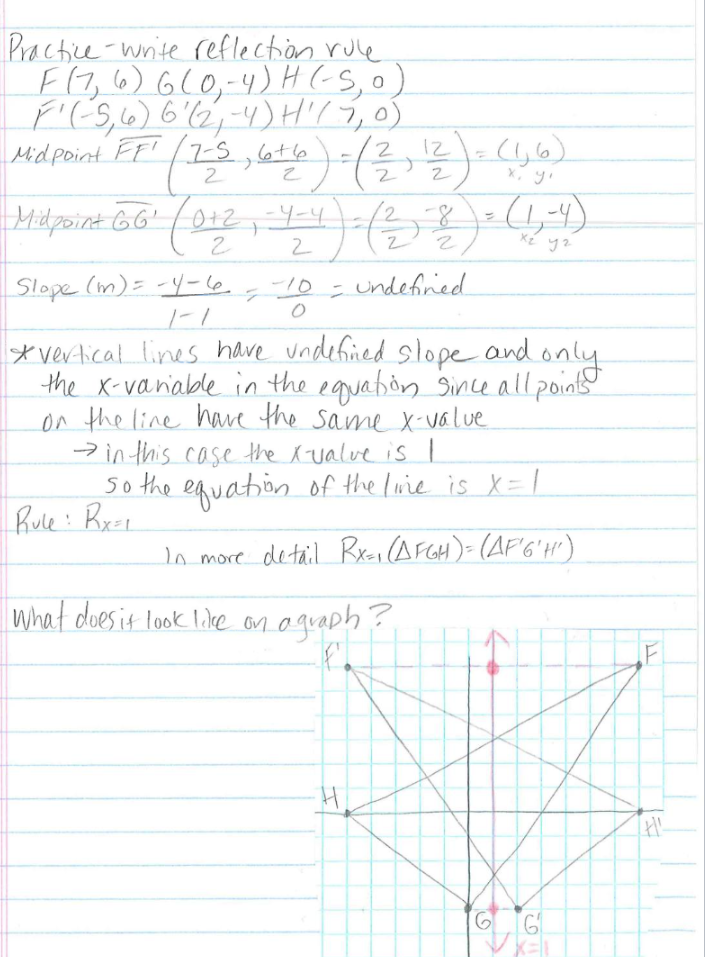 Practice - write reflection rule
F(7, 6) G(0, -4) H(-5, 0)
F'(-5, 6) G'(2, -4) H'(7, 0)
Midpoint FF' (7-5/2, 6+6/2) = (2/2, 12/2) = (1, 6)
x1 y1
Midpoint GG' (0+2/2, -4-4/2) = (2/2, -8/2) = (1, -4)
x2 y2
Slope (m) = -4-6/1-1 = -10/0 = undefined
*vertical lines have undefined slope and only
the x-variable in the equation since all points
on the line have the same x-value
→ in this case the x-value is 1
so the equation of the line is x=1
Rule: Rx=1
In more detail Rx=1 (△FGH) = (△F'G'H')
What does it look like on a graph?
F' F
H H'
G G'
x=1